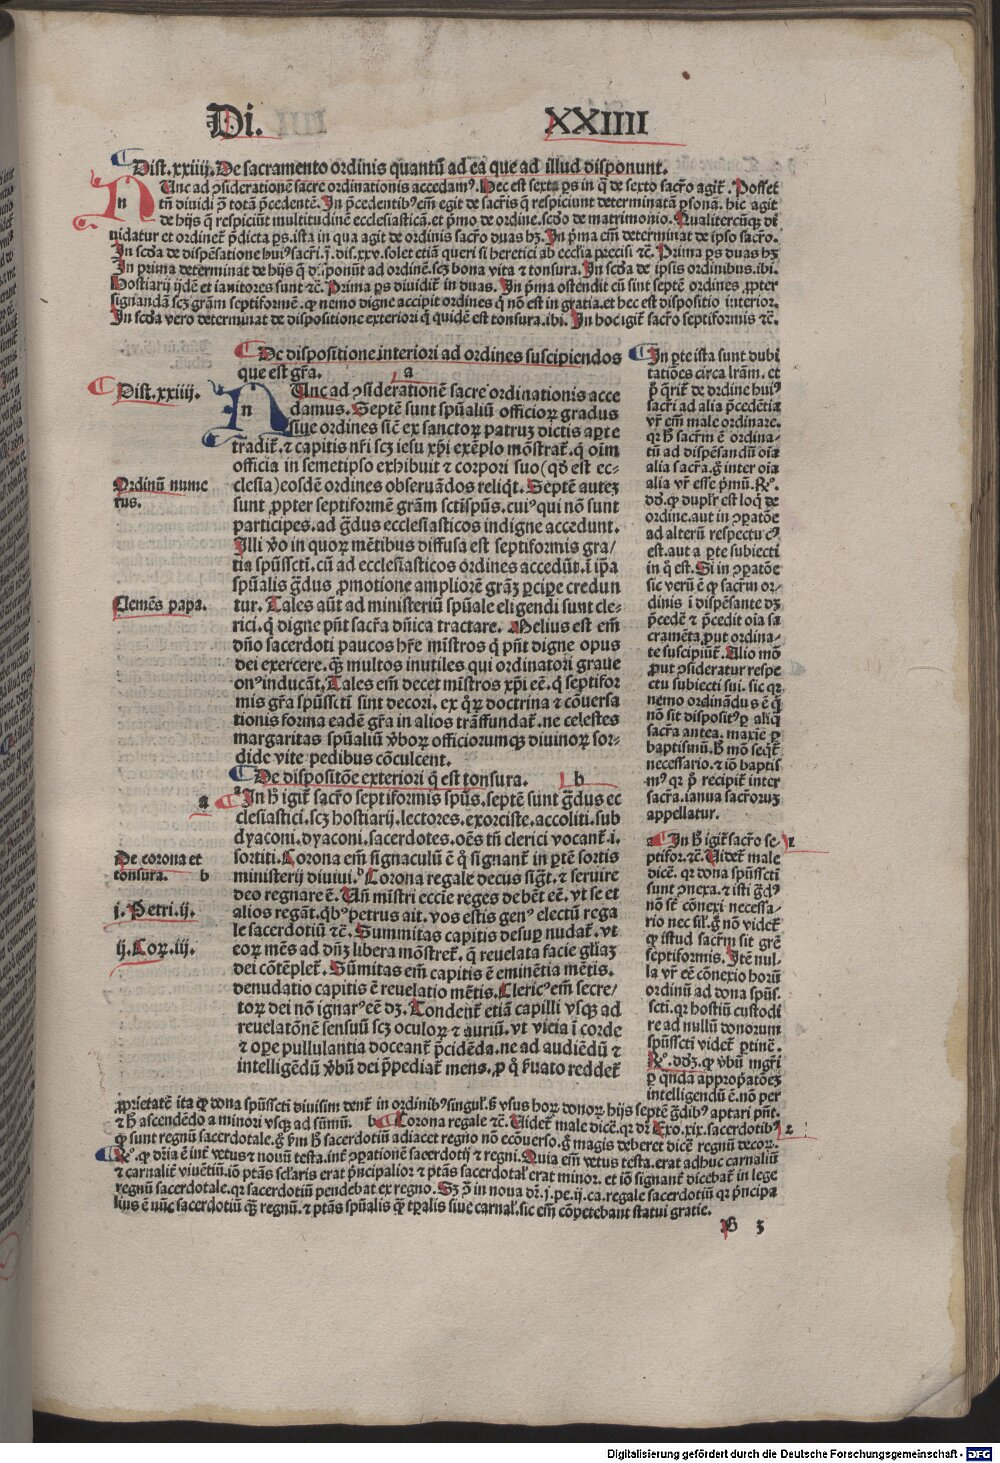 Di. XXIIII
Dist. xxiiij. De sacramento ordinis quantũ ad ea que ad illud disponunt.
NUnc ad ↄsiderationẽ sacre ordinationis accedamꝰ. Hec est sexta ps in q̃ de sexto sacr̃o agit᷑. Posset
tñ diuidi ꝯ̃ totã p̃cedentẽ. In p̃cedentibꝰ em̃ egit de sacr̃is q̃ respiciunt determinatã ꝑsonã. hic agit
de hijs q̃ respiciũt multitudinẽ ecclesiasticã. et pͥmo de ordine. scd̃o de matrimonio. Qualitercũqꝫ di
uidatur et ordinet᷑ p̃dicta ps. ista in qua agit de ordinis sacr̃o duas hꝫ. In pͥma em̃ determinat de ipso sacr̃o.
In scd̃a de dispẽsatione huiꝰ sacr̃i. j. dis. xxv. solet etiã queri si heretici ab ecclĩa precisi ⁊c̃. Prima ps duas hꝫ
In prima determinat de hijs q̃ disponũt ad ordinẽ. scꝫ bona vita ⁊ tonsura. In scd̃a de ipsis ordinibus. ibi.
Hostiarij ijdẽ et ianitores sunt ⁊c̃. Prima ps diuidit᷑ in duas. In pͥma ostendit cũ sint septẽ ordines ꝓpter
signandã scꝫ grãm septiformẽ. ꝙ nemo digne accipit ordines q̃ nõ est in gratia. et hec est dispositio interior.
In scd̃a vero determinat de dispositione exteriori q̃ quidẽ est tonsura. ibi. In hoc igit᷑ sacr̃o septiformis ⁊c̃.
De dispositione interiori ad ordines suscipiendos
que est gr̃a. a
Dist. xxiiij.
NUnc ad ↄsiderationẽ sacre ordinationis acce
damus. Septẽ sunt spũaliũ officioꝝ gradus
siue ordines sic̃ ex sanctoꝝ patruꝫ dictis aꝑte
tradit᷑. ⁊ capitis nr̃i scꝫ iesu xp̃i exẽplo mõstrat᷑. q̃ oĩm
officia in semetipso exhibuit ⁊ corpori suo (qd̃ est ec⸗
clesia) eosdẽ ordines obseruãdos reliq̃t. Septẽ auteꝫ
Ordinũ nume
rus.
sunt ꝓpter septiformẽ grãm sctĩspũs. cuiꝰ qui nõ sunt
participes. ad g̃dus ecclesiasticos indigne accedunt.
Illi v̾o in quoꝝ mẽtibus diffusa est septiformis gra/
tia spũsscti. cũ ad ecclesiasticos ordines accedũt. ĩ ip̃a
spũalis g̃dus ꝓmotione ampliorẽ grãꝫ ꝑcipe credun
tur. Tales aũt ad ministeriũ spũale eligendi sunt cle⸗
Clemẽs papa.
rici. q̃ digne pñt sacr̃a dñica tractare. Melius est em̃
dño sacerdoti paucos hr̃e mĩstros q̃ pñt digne opus
dei exercere. q̃ꝫ multos inutiles qui ordinatori graue
onꝰ inducãt. Tales em̃ decet mĩstros xp̃i eẽ. q̃ septifor
mis gr̃a spũsscti sint decori. ex q̃ꝝ doctrina ⁊ cõuersa
tionis forma eadẽ gr̃a in alios trãffundat᷑. ne celestes
margaritas spũaliũ v̾boꝝ officiorumqꝫ diuinoꝝ sor⸗
dide vite pedibus cõculcent.
De dispositõe exteriori q̃ est tonsura. b
a In h̃ igit᷑ sacr̃o septiformis spũs. septẽ sunt g̃dus ec
clesiastici. scꝫ hostiarij. lectores. exorciste. accoliti. sub
dyaconi. dyaconi. sacerdotes. oẽs tñ clerici vocant᷑. i.
De corona et
tonsura. b
sortiti. Corona em̃ signaculũ ẽ q̊ signant᷑ in ꝑtẽ sortis
ministerij diuiui. Corona regale decus sigt᷑. ⁊ seruire
deo regnare ẽ. Uñ mĩstri eccĩe reges debẽt eẽ. vt se et
j. Petri. ij.
alios regãt. qͥbꝰ petrus ait. vos estis genꝰ electũ rega
le sacerdotiũ ⁊c̃. Summitas capitis desuꝑ nudat᷑. vt
ij. Coꝝ. iij.
eoꝝ mẽs ad dñꝫ libera mõstret᷑. q̃ reuelata facie gl̃iaꝫ
dei cõtẽplet᷑. Sũmitas em̃ capitis ẽ eminẽtia mẽtis.
denudatio capitis ẽ reuelatio mẽtis. Clericꝰ em̃ secre/
toꝝ dei nõ ignarꝰ eẽ dꝫ. Tondent᷑ etiã capilli vsqꝫ ad
reuelatõnẽ sensuũ scꝫ oculoꝝ ⁊ auriũ. vt vicia ĩ corde
⁊ oꝑe pullulantia doceant᷑ p̃cidẽda. ne ad audiẽdũ ⁊
intelligẽdũ v̾bũ dei p̃pediat᷑ mens. ꝓ q̊ ẜuato reddet᷑
In ꝑte ista sunt dubi
tatiões circa lr̃am. et
pͥ qͥrit᷑ de ordine huiꝰ
sacr̃i ad alia p̃cedẽtia
vr̃ em̃ male ordinare.
qꝛ h̃ sacr̃m ẽ ordina⸗
tũ ad dispẽsandũ oĩa
alia sacr̃a. g̊ inter oĩa
alia vr̃ esse pͥmũ. Rꝰ.
dd̃. ꝙ duplr̃ est loqͥ de
ordine. aut in ↄꝑatõe
ad alterũ respectu cꝰ
est. aut a ꝑte subiecti
in q̊ est. Si in ↄꝑatõe
sic verũ ẽ ꝙ sacr̃m or⸗
dinis ĩ dispẽsante dꝫ
p̃cedẽ ⁊ p̃cedit oĩa sa
cramẽta. ꝓut ordina⸗
te suscipiũt᷑. Alio mõ
ꝓut ↄsideratur respe
ctu subiecti sui. sic qꝛ
nemo ordinãdus ẽ q̃
nõ sit dispositꝰ ꝑ aliq̃
sacr̃a antea. maxĩe ꝑ
baptismũ. h̃ mõ seqͥt᷑
necessario. ⁊ iõ baptis
mꝰ qꝛ pͥ recipit᷑ inter
sacr̃a. ianua sacr̃oruꝫ
appellatur.
a In h̃ igit᷑ sacr̃o se⸗ 1
ptifor. ⁊c̃. Uidet᷑ male
dicẽ. qꝛ dona spũsscti
sunt ↄnexa. ⁊ isti g̃dꝰ
nõ st̃ cõnexi necessa⸗
rio nec sil̃. g̊ nõ videt᷑
ꝙ istud sacr̃m sit grẽ
septiformis. Itẽ nul⸗
la vr̃ eẽ cõnexio horũ
ordinũ ad dona spũs.
scti. qꝛ hostiũ custodi
re ad nullũ donorum
spũsscti videt᷑ ꝑtinẽ.
Rꝰ. ddꝫ. ꝙ v̾bũ mgr̃i
ꝑ q̃nda appropͥatõeꝫ
intelligendũ ẽ. nõ per
ꝓprietatẽ ita ꝙ dona spũsscti diuisim dent᷑ in ordinibꝰ singul᷑. ẜ vsus hoꝝ donoꝝ hijs septẽ g̃dibꝰ aptari pñt.
⁊ h̃ ascendẽdo a minori vsqꝫ ad sũmũ. b Corona regale ⁊c̃. Uidet᷑ male dicẽ. qꝛ dr̃ Exo. xix. sacerdotibꝰ 2
ꝙ sunt regnũ sacerdotale. g̊ pͥm h̃ sacerdotiũ adiacet regno nõ ecõuerso. g̊ magis deberet dicẽ regnũ decoꝝ.
Rꝰ. ꝙ dr̃ia ẽ int᷑ vetus ⁊ nouũ testa. int᷑ ↄꝑationẽ sacerdotij ⁊ regni. Quia em̃ vetus testa. erat adhuc carnaliũ
⁊ carnalit᷑ viuẽtiũ. iõ ptãs scl̃aris erat pͥncipalior ⁊ ptãs sacerdotal᷑ erat minor. et iõ signant᷑ dicebat᷑ in lege
regnũ sacerdotale. qꝛ sacerdotiũ pendebat ex regno. Sꝫ ꝯ̃ in noua dr̃. j. pe. ij. ca. regale sacerdotiũ qꝛ pͥncipa
lius ẽ nũc sacerdotiũ q̃ꝫ regnũ. ⁊ ptãs spũalis q̃ꝫ tꝑalis siue carnal᷑. sic em̃ cõpetebant statui gratie.
B 3
Digitalisierung gefördert durch die Deutsche Forschungsgemeinschaft - DFG